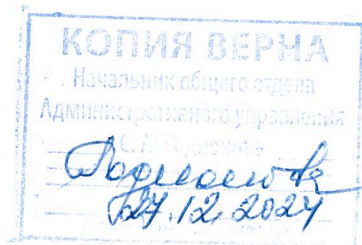 КОПИЯ ВЕРНА
Начальник общего отдела
Административного управления
27.12.2024